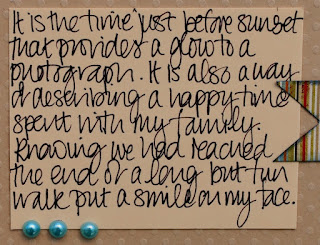 It is the time just before sunset
that provides a glow to a
photograph. It is also a way
of describing a happy time
spent with my family.
Knowing we had reached
the end of a long but fun
walk put a smile on my face.